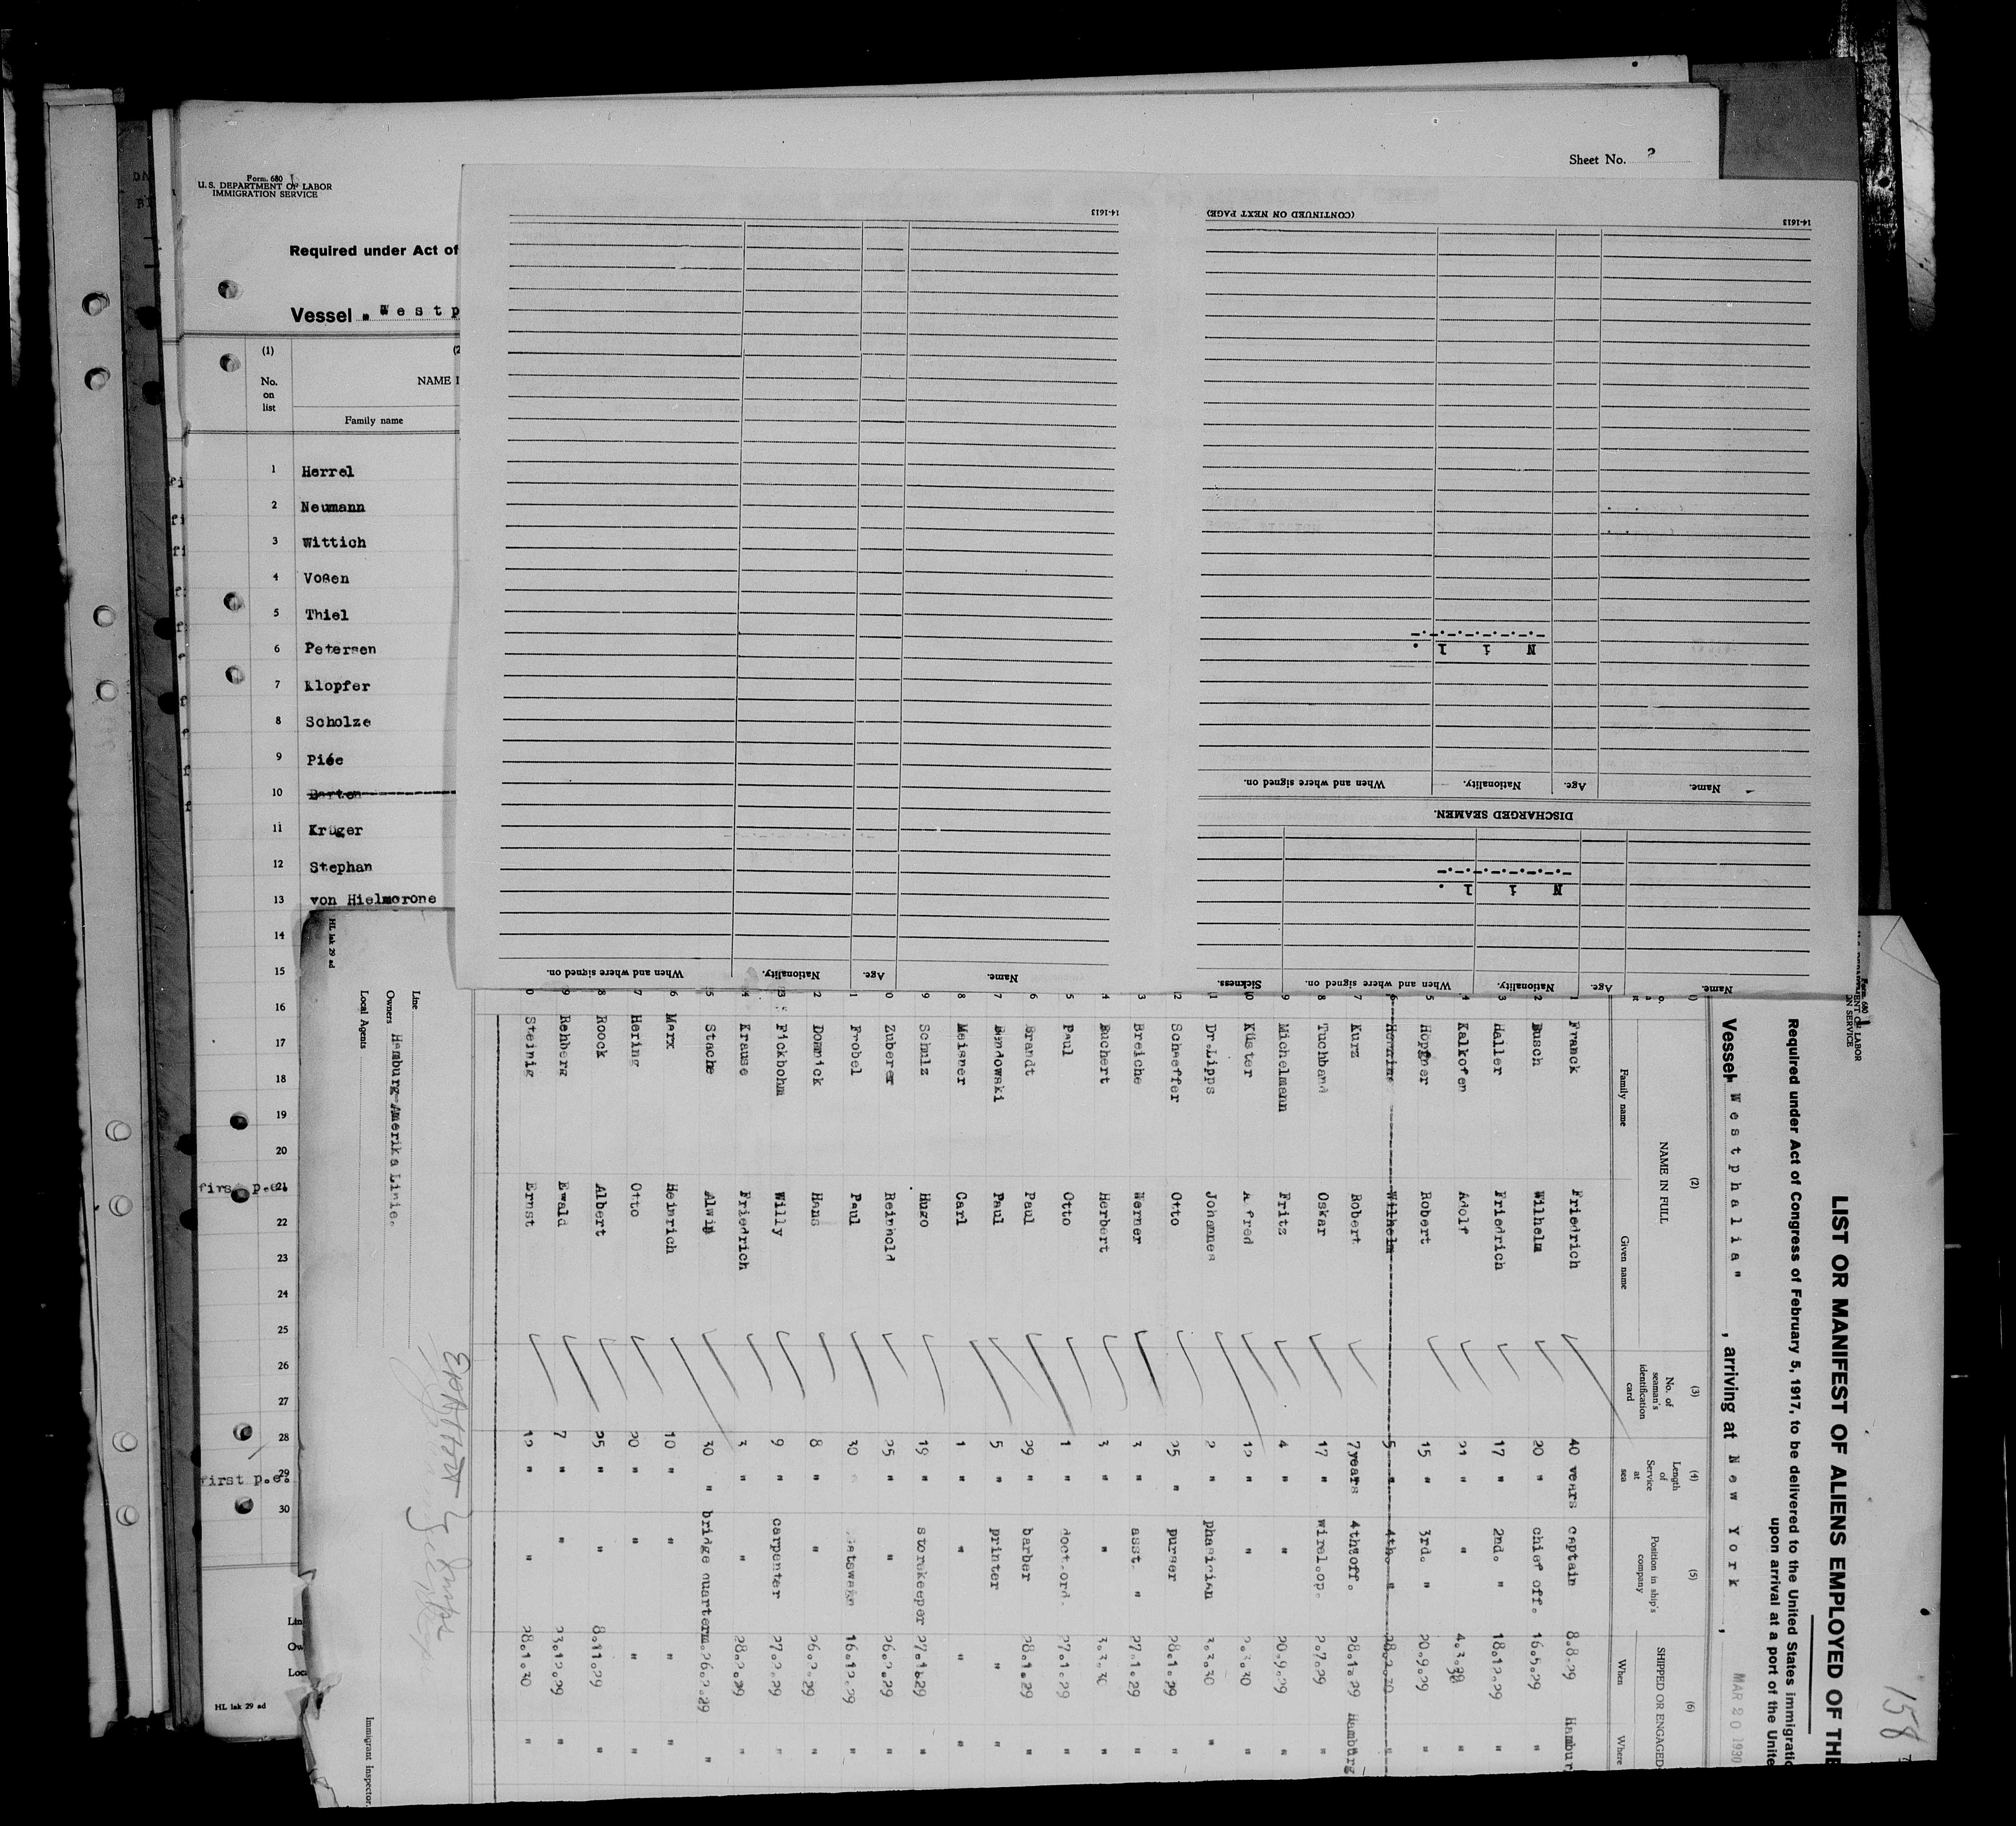 Sheet No. 2
Form. 680
U.S. DEPARTMENT OF LABOR
IMMIGRATION SERVICE
Required under Act of
Vessel „ W e s t p
(1)
No.
on
list
NAME I
Family name
1 Herrel
2 Neumann
3 Wittich
4 Voßen
5 Thiel
6 Petersen
7 Klopfer
8 Scholze
9 Piée
10 Barten
11 Krüger
12 Stephan
13 von Hielmcrone
14
15
16
17
18
19
20
first p.e. 21
22
23
24
25
26
27
28
first p.e. 29
30
HL lak 29 ad
14-1613
When and where signed on.
Nationality.
Age.
Name.
(CONTINUED ON NEXT PAGE)
14-1613
N i l .
Name.
Age.
Nationality.
When and where signed on.
DISCHARGED SEAMEN.
N i l .
Name.
Age.
Nationality.
When and where signed on.
Sickness.
158
LIST OR MANIFEST OF ALIENS EMPLOYED OF THE
Required under Act of Congress of February 5, 1917, to be delivered to the United States immigratio
upon arrival at a port of the Unite
Vessel „ W e s t p h a l i a " , arriving at N e w Y o r k , MAR 20 1930
(2)
NAME IN FULL
Family name
Given name
(3)
No. of
seaman's
identification
card
(4)
Length
of
Service
at
sea
(5)
Position in ship's
company
(6)
SHIPPED OR ENGAGED
When
Where
1 Franck Friedrich 40 years captain 8.8.29 Hambur
2 Busch Wilhelm 20 " chief off. 16.5.29 "
3 Haller Friedrich 17 " 2nd. " 18.12.29 "
4 Kalkofen Adolf 21 " " 4.3.30 "
5 Höpfner Robert 15 " 3rd. " 20.9.29 "
6 Henning Wilhelm 5 " 4th. " 28.2.30 "
7 Kurz Robert 7 years 4th off. 28.1.29 Hamburg
8 Tuchband Oskar 17 " wirel.op. 2.7.29 "
9 Michelmann Fritz 4 " " 20.9.29 "
10 Küster Alfred 12 " " 2.3.30 "
11 Dr.Lipps Johannes 2 " phasician 3.3.30 "
12 Schaeffer Otto 25 " purser 28.1.29 "
3 Breiche Werner 3 " asst. " 27.1.29 "
4 Buchert Herbert 3 " " 3.3.30 "
5 Paul Otto 1 " doct.ord. 27.1.29 "
6 Brandt Paul 29 " barber 28.1.29 "
7 Bandowski Paul 5 " printer " "
8 Meisner Carl 1 " " " "
9 Schulz Hugo 19 " storekeeper 27.1.29 "
0 Zuberer Reinhold 25 " " 26.2.29 "
1 Frobel Paul 30 16.12.29 "
2 Domnick Hans 8 " " 26.2.29 "
3 Fickbohm Willy 9 " carpenter 27.2.29 "
4 Krause Friedrich 3 " " 28.2.29 "
5 Stache Alwin 30 " bridge quarterm. 26.2.29 "
6 Marx Heinrich 10 " " " "
7 Hering Otto 20 " " " "
8 Roock Albert 25 " " 8.11.29 "
9 Rehberg Ewald 7 " " 23.12.29 "
0 Steinig Ernst 12 " " 28.1.30 "
Line
Owners Hamburg-Amerika Linie.
Local Agents
Immigrant Inspector.
HL lak 29 ad